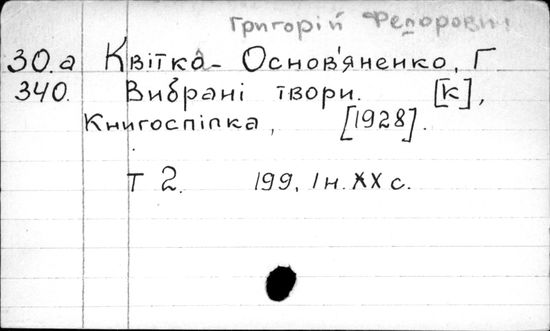 Григорій Федорович
30.а Квітка- Основ'яненко, Г
340. Вибрані твори. [К],
Книгоспілка, [1928].
Т 2. 199, Iн. XX с.